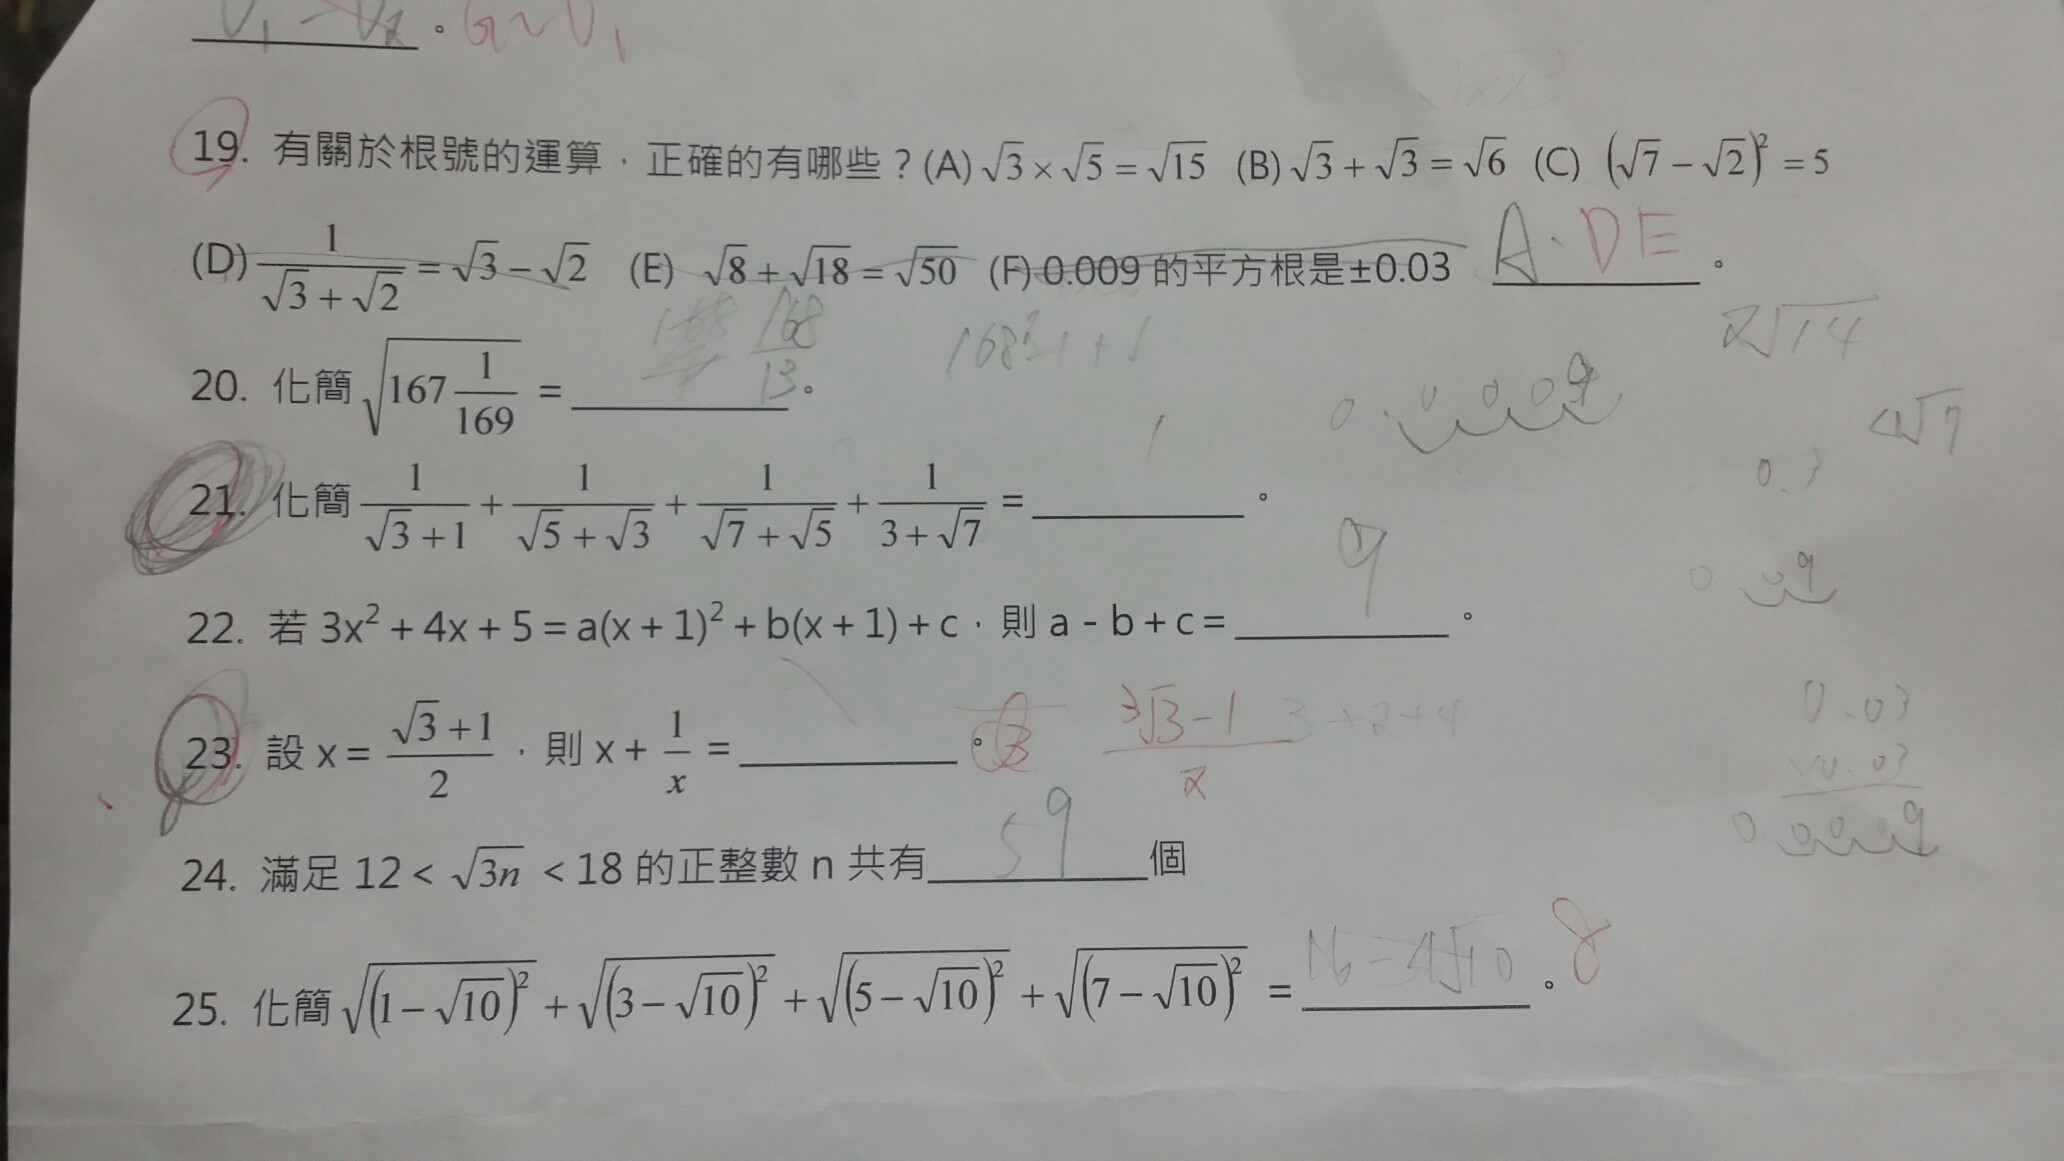 19. 有關於根號的運算，正確的有哪些？(A) √3 × √5 = √15 (B) √3 + √3 = √6 (C) (√7 − √2)² = 5
(D) 1/(√3 + √2) = √3 − √2 (E) √8 + √18 = √50 (F) 0.009 的平方根是±0.03 A、DE。
2√14
20. 化簡 √(167 1/169) = 168/13。 168²-1+1
0.0009
4√7
21. 化簡 1/(√3 + 1) + 1/(√5 + √3) + 1/(√7 + √5) + 1/(3 + √7) = 1。
0.3
22. 若 3x² + 4x + 5 = a(x + 1)² + b(x + 1) + c，則 a - b + c = 9。
0.09
23. 設 x = (√3 + 1)/2，則 x + 1/x = 。 (3√3 − 1)/2 3+2+4
0.03
×0.03
0.0009
24. 滿足 12 < √3n < 18 的正整數 n 共有 59 個
25. 化簡 √(1 − √10)² + √(3 − √10)² + √(5 − √10)² + √(7 − √10)² = 16-4√10。8